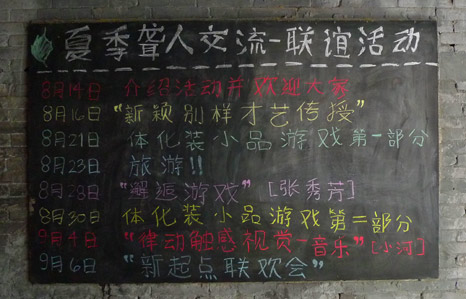 夏季聋人交流-联谊活动
8月14日 介绍活动并欢迎大家
8月16日 "新颖别样才艺传授"
8月21日 体化装小品游戏第一部分
8月23日 旅游!!
8月28日 "邂逅游戏" [张秀芳]
8月30日 体化装小品游戏第二部分
9月4日 "律动触感视觉-音乐" [小河]
9月6日 "新起点联欢会"